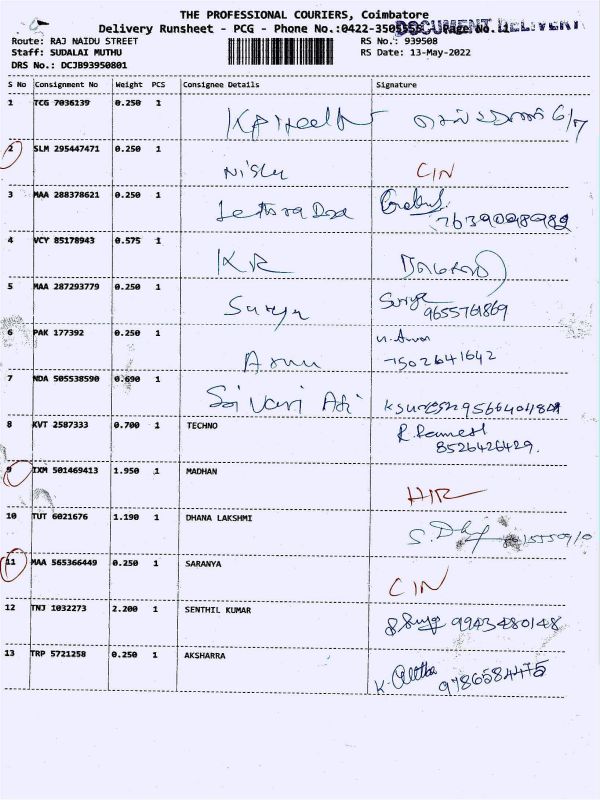 THE PROFESSIONAL COURIERS, Coimbatore
Delivery Runsheet - PCG - Phone No.:0422-350 Page No. 1
DOCUMENT DELIVERY
Route: RAJ NAIDU STREET RS No.: 939508
Staff: SUDALAI MUTHU RS Date: 13-May-2022
DRS No.: DCJB93950801
S No Consignment No Weight PCS Consignee Details Signature
1 TCG 7036139 0.250 1
2 SLM 295447471 0.250 1 CIN
3 MAA 288378621 0.250 1
7639098982
4 VCY 85178943 0.575 1 KR
5 MAA 287293779 0.250 1 Surya Surya
9655761869
6 PAK 177392 0.250 1
7502641642
7 NDA 505538590 0.690 1 Sai Vari
8 KVT 2587333 0.700 1 TECHNO R. Ramesh
8526426429.
9 IXM 501469413 1.950 1 MADHAN
10 TUT 6021676 1.190 1 DHANA LAKSHMI
11 MAA 565366449 0.250 1 SARANYA
CIN
12 TNJ 1032273 2.200 1 SENTHIL KUMAR 9943480148
13 TRP 5721258 0.250 1 AKSHARRA
9786584475